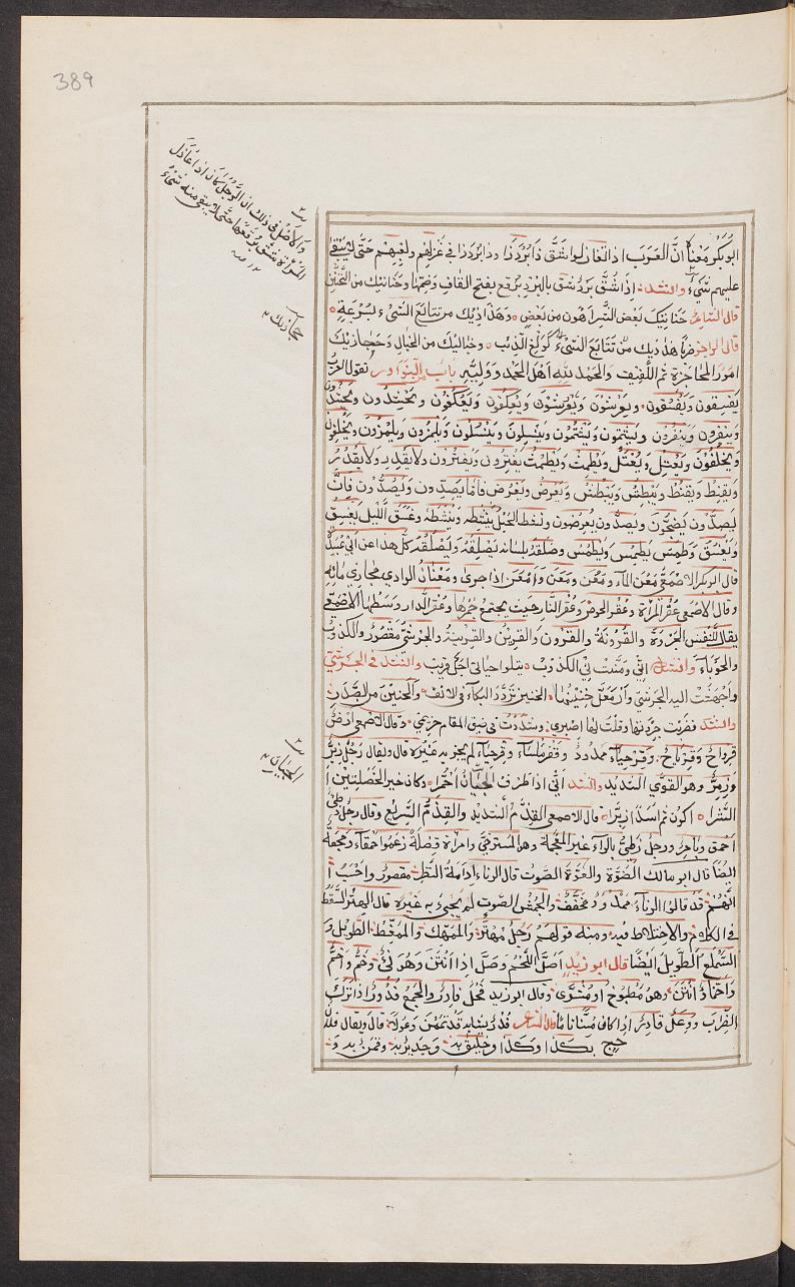 389
والاصل فى ذلك ان الرجل كان اذا غازل
المرأة شق برقعها حتى لا يبقى منه شىء
ابو بكر معناه انّ العرب اذا تغازلوا شقق ذا برد ذا وذا برد ذا فى غزلهم ولعبهم حتى لا يبقى
عليهم شىء وانشد: اذا شق برد شق بالبرد برقع بفتح القاف وضمها وحنانيك من التحنن
قال الشاعر حنانيك بعض الشر اهون من بعض وهذاذيك من تتابع الشىء بسرعة
قال الراجز ضربا هذاذيك من تتابع الشىء كولغ الذئب وخباليك من الخبال وحجازيك
امور المحاجزة تم اللفيف والحمد لله اهل الحمد ووليه باب النوادر تقول العرب
يفسقون ويفسقون ويعرشون ويعرشون ويعكفون ويعكفون ويحشدون ويحشدون
وينفرون وينفرون ويشتمون ويشتمون وينسلون وينسلون ويلمزون ويلمزون ويخلفون
ويخلفون ويعتل ويعتل ويطمث ويطمث يفترون ويفترون ولا يقدر ولا يقدر
ويقنط ويقنط ويبطش ويبطش ويعرض ويعرض فاما يصدون ويصدون فان
يصدون يضجون ويصدون يعرضون ونشط الحبل ينشطه وينشطه وغسق الليل يغسق
ويغسق وطمس يطمس ويطمس وصلقه بلسانه يصلقه ويصلقه كل هذا عن ابى عبيد
قال ابو بكر الاصمعى معن الماء ومعن ومعن وامعن اذا جرى ومعنان الوادى مجارى مائه
وقال الاصمعى عقر المرأة وعقر الحوض وعقر النار حيث يجتمع جمرها وعقر الدار وسطها الاصمعى
يقال للنفس الجردة والقرونة والقرون والقرين والقرينة والجرشى مقصور والكذوب
والحوباء وانشد انى ومنت نى الكذوب يتلو حياتى اجل قريب وانشد فى الجرشى
واجهشت اليه الجرشى وارمعل خنينها الخنين تردد البكاء فى الانف والحنين من الصدر
وانشد فقربت جردتها وقلت لها اصبرى وشددت فى ضيق المقام حزيمى وقال الاصمعى ارض
قرواح وقرياح وقرحياء ممدود وقفز ملساء وقرحياء لم يجز به غيره قال ويقال رجل زبر
وزمر وهو القوى الشديد وانشد انى اذا طرف الجبان احمر وكان خير الخصلتين ا
الشرا اكون ثم اسدا زبرا قال الاصمعى القذم الشديد والقذم السريع وقال رجل
احمق وباحر ورجل رطئ بالراء غير المعجمة وهو المسترخى وامرأة قصلة زعموا حمقاء
ايضا قال ابو مالك الضوة والعوة الصوت قال الرناء ادامة النظر مقصور واحسب ا
انهم قد قالوا الرناء ممدود مخفف والجمش الصوت لم يجئ به غيره قال الهتر السقط
فى الكلام والاختلاط فيه ومنه قولهم رجل مهتر والممهك والممغط الطويل و
السملع الطويل ايضا قال ابو زيد اصل اللحم وصل اذا انتن وهو نئ وخم واخم
اذا انتن وهو مطبوخ او مشوى وقال ابو زيد فحل فادر والجمع فدور اذا ترك
الضراب ووعل فادر اذا كان مسنا تاما قال الشاعر فدر بشابة قد تممن وعولا قال ويقال فلان
حج بكذا وكذا وخليق به وجدير به وقمن به و
حجازيك
الجبان